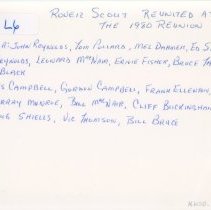 L6
ROVER SCOUT REUNITED AT
THE 1980 REUNION
R: JOHN REYNOLDS, TOM POLLARD, MEL DAMMER, ED S
REYNOLDS, LEONARD MACNAIR, ERNIE FISHER, BRUCE
BLACK
S CAMPBELL, GORDON CAMPBELL, FRANK
MURRAY MUNROE, BILL MACNAIR, CLIFF BUCKINGHAM
SHIELDS, VIC THOMSON, BILL BRUCE